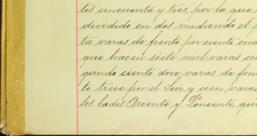 tos cincuenta y tres por lo que
dividido en dos midiendo el
ta varas de frente por ciento cua
que hacen siete mil varas cu
gundo ciento doce varas de fon
te trece por el Sur y cien varas
los lados Oriente y Poniente qui